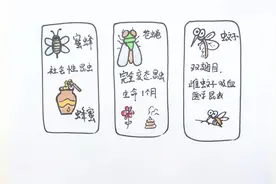 蜜蜂
社会性昆虫
蜂蜜
苍蝇
完全变态昆虫
生命1个月
蚊子
双翅目,
雌蚊子吸血
医学昆虫